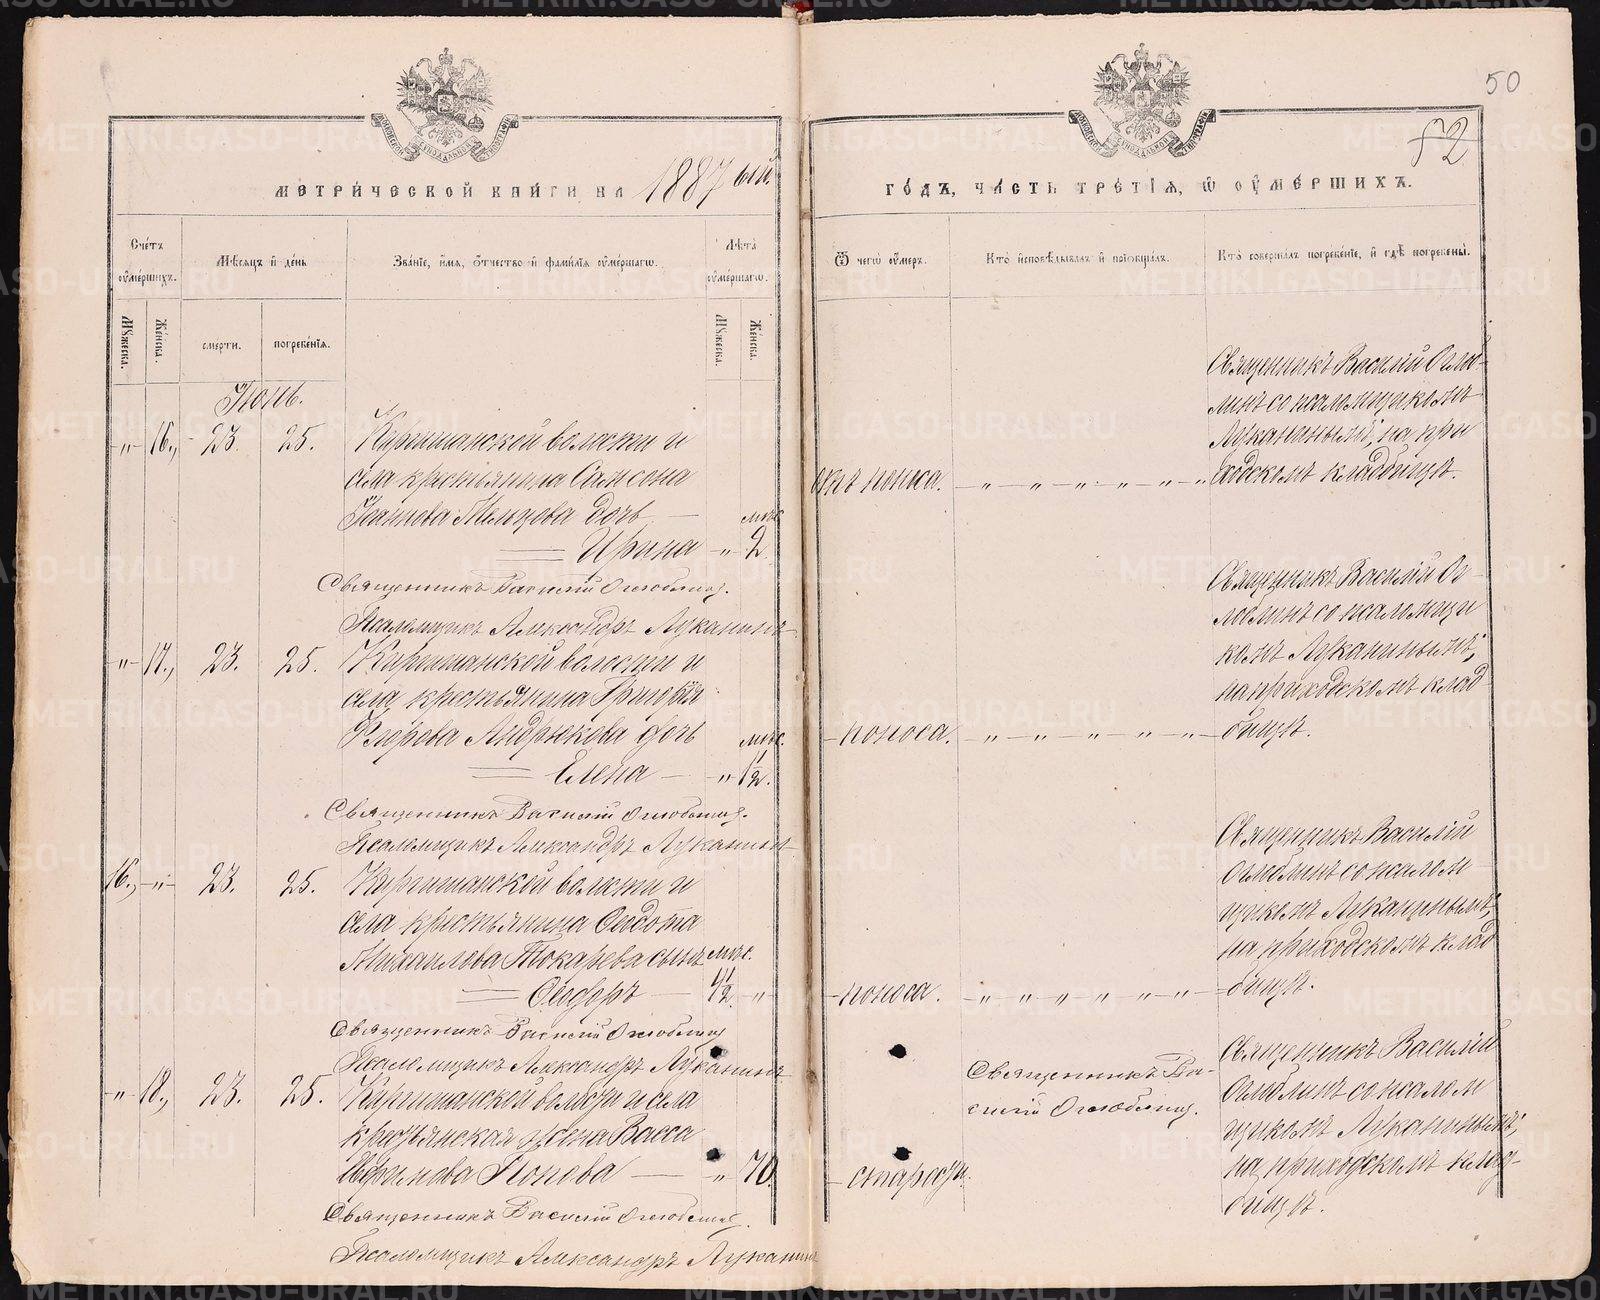 50
52
МЕТРИЧЕСКОЙ КНИГИ НА 1887 ый.
ГОДЪ, ЧАСТЬ ТРЕТІЯ, Ѿ ОУМЕРШИХЪ.
Счетъ оумершихъ.
Мѣсяцъ и день
Званіе, имя, отчество и фамилія оумершагѡ.
Лѣта оумершагѡ.
Ѿ чегѡ оумеръ.
Кто исповѣдывалъ и пріобщалъ.
Кто совершалъ погребеніе, и гдѣ погребены.
Мужеска.
Женска.
смерти.
погребенія.
Мужеска.
Женска.
Іюнь.
-„- 16., 23. 25. Киргишанской волости и
села крестьянина Самсона
Иванова Мельцова дочь — мѣс.
Ирина -„- 2.
отъ поноса. „ — „ — „ — „ — „ — „
Священникъ Василій Огло-
блинъ со псаломщикомъ
Луканинымъ, на при
ходскомъ кладбищѣ.
Священникъ Василій Оглоблинъ.
Псаломщикъ Александръ Луканинъ
-„- 17., 23. 25. Киргишанской волости и
села крестьянина Григорія
Флорова Андрюкова дочь мѣс.
Елена — -„- 1½.
— поноса. „ — „ — „ — „ — „
Священникъ Василій Ог-
лоблинъ со псаломщи
комъ Луканинымъ;
на приходскомъ клад
бищѣ.
Священникъ Василій Оглоблинъ.
Псаломщикъ Александръ Луканинъ
16., -„- 23. 25. Киргишанской волости и
села крестьянина Федота
Михаилова Токарева сынъ мѣс.
Федоръ — 4½. -„-
— поноса. „ — „ — „ — „ — „ — „
Священникъ Василій
Оглоблинъ со псалом
щикомъ Луканинымъ,
на приходскомъ клад
бищѣ.
Священникъ Василій Оглоблинъ
Псаломщикъ Александръ Луканинъ
-„- 18., 23. 25. Киргишанской волости и села
крестьянская жена Васса
Ефимова Попова — -„- 70.
— старости.
Священникъ Ва-
силій Оглоблинъ.
Священникъ Василій
Оглоблинъ со псалом
щикомъ Луканинымъ;
на приходскомъ клад-
бищѣ.
Священникъ Василій Оглоблинъ.
Псаломщикъ Александръ Луканинъ
METRIKI.GASO-URAL.RU